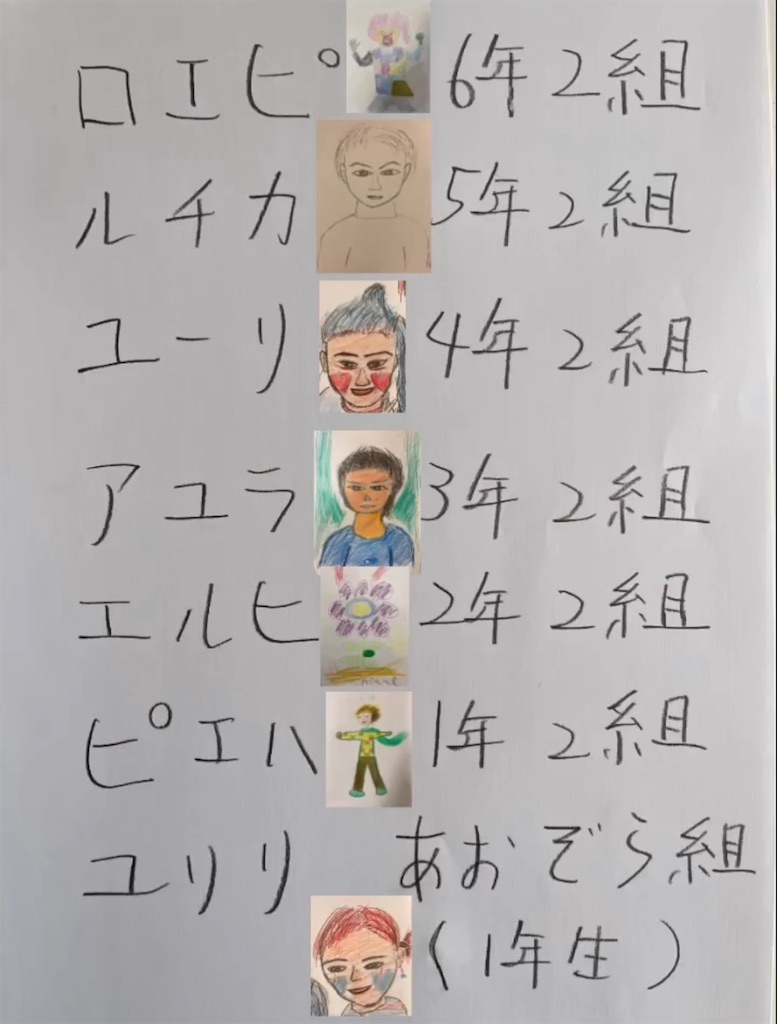 ロエピ 6年2組
ルチカ 5年2組
ユーリ 4年2組
アユラ 3年2組
エルヒ 2年2組
ピエハ 1年2組
ユリリ あおぞら組
(1年生)